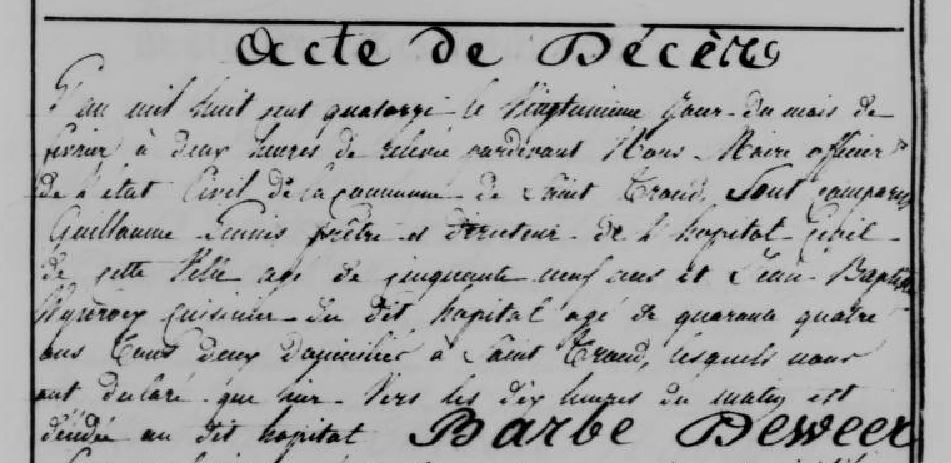 Acte de Décès
L'an mil huit cent quatorze le vingtunieme Jour du mois de
fevrier à deux heures de relevée pardevant Nous Maire officier
de l'état Civil de la commune de Saint Trond, Sont comparus
Guillaume prêtre et directeur de l'hopital Civil
de cette Ville agé de cinquante neuf ans et Jean Baptiste
cuisinier du dit hopital agé de quarante quatre
ans tous deux domiciliés à Saint Trond, lesquels nous
ont declaré que hier vers les dix heures du matin est
décédée au dit hopital Barbe Deweer